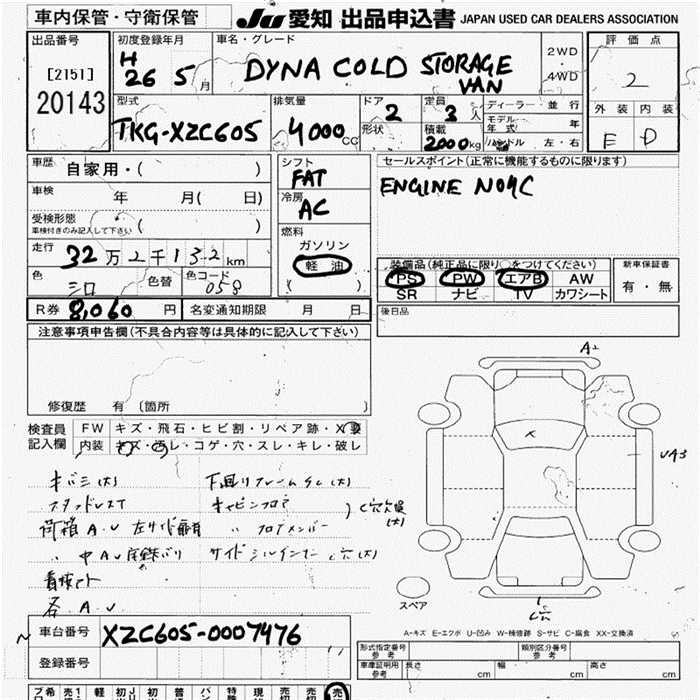 車内保管・守衛保管
JU 愛知 出品申込書 JAPAN USED CAR DEALERS ASSOCIATION
出品番号
[2151]
20143
初度登録年月
H
26 5月
車名・グレード
DYNA COLD STORAGE
VAN
2WD
・
4WD
評価点
2
外装 内装
E D
型式
TKG-XZC605
排気量
4000cc
ドア
2
形状
定員
3人
積載
2000kg
ディーラー・並行
モデル年式 年
ハンドル 左・右
車歴
自家用・( )
車検
年 月( 日)
受検形態
車検付きのみ記入して下さい ( )
走行
32万2千132km
色
シロ
色替
色コード
058
シフト
FAT
冷房
AC
燃料
ガソリン
軽油
( )
セールスポイント(正常に機能するものに限ります)
ENGINE N04C
装備品(純正品に限り○をつけてください)
PS PW エアB AW
SR ナビ TV カワシート
新車保証書
有・無
R券 8,060 円
名変通知期限 月 日
後日品
注意事項申告欄(不具合内容等は具体的に記入して下さい)
修復歴 有 (箇所 )
検査員
記入欄
FW キズ・飛石・ヒビ割・リペア跡・X要
内装 キズ・汚レ・コゲ・穴・スレ・キレ・破レ
キバミ(大) 下回リフレームサC(大)
スタッドレス キャビンフロア
荷箱A.U 左サイド
〃 フロアメンバー
C穴
(大)
〃 中AU サイドシルインナーC穴(大)
各A.U
A2
X
UA3
スペア
A-キズ E-エクボ U-凹み W-補修跡 S-サビ C-腐食 XX-交換済
車台番号 XZC605-0007476
登録番号
形式指定番号
参考
類別区分番号
参考
車庫証明用
参考
長さ cm 幅 cm 高さ cm